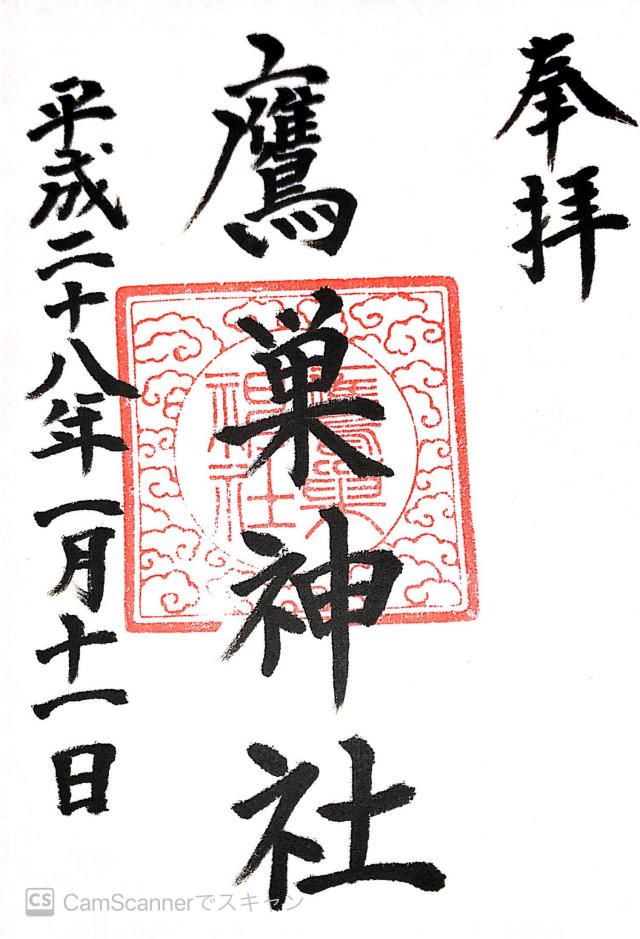 奉拝
鷹巣神社
鷹巣
神社
平成二十八年一月十一日
CS CamScannerでスキャン